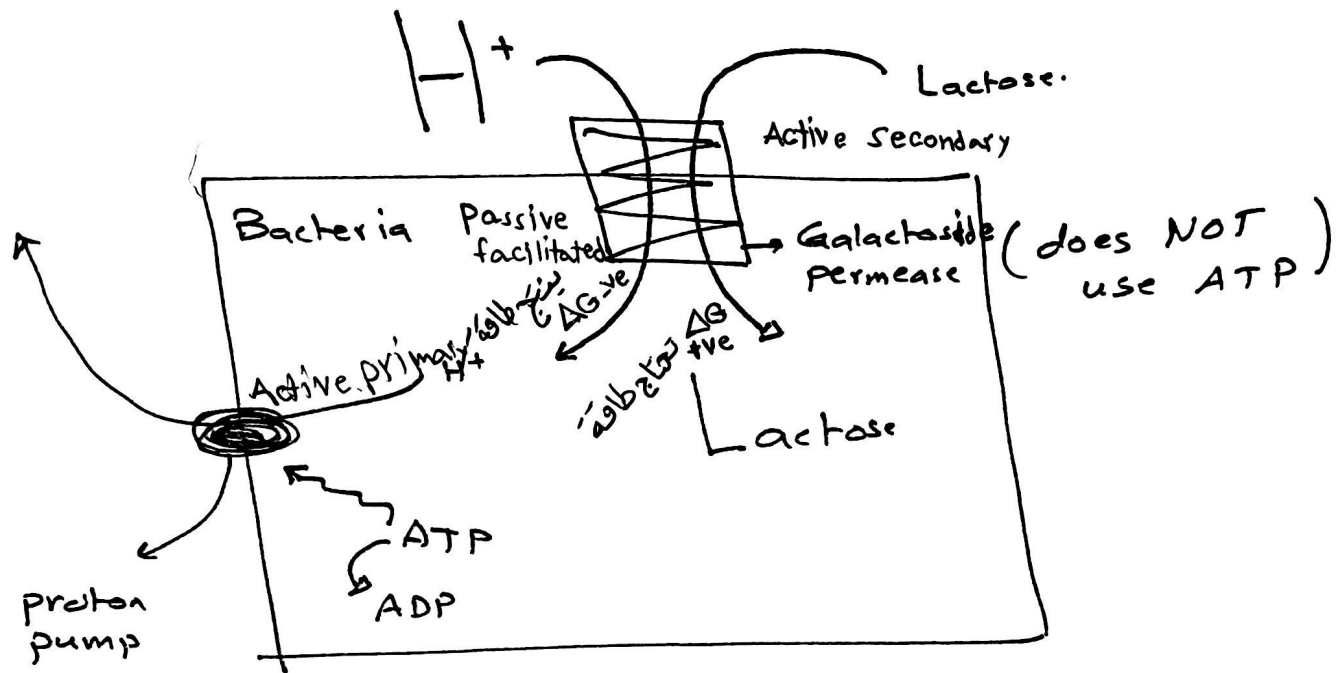 H+
Lactose.
Active secondary
Bacteria
Passive
facilitated
Galactoside
permease
(does NOT
use ATP)
ΔG -ve
ينتج طاقة
H+
Active primary
ΔG
+ve
تحتاج طاقة
Lactose
ATP
ADP
proton
pump